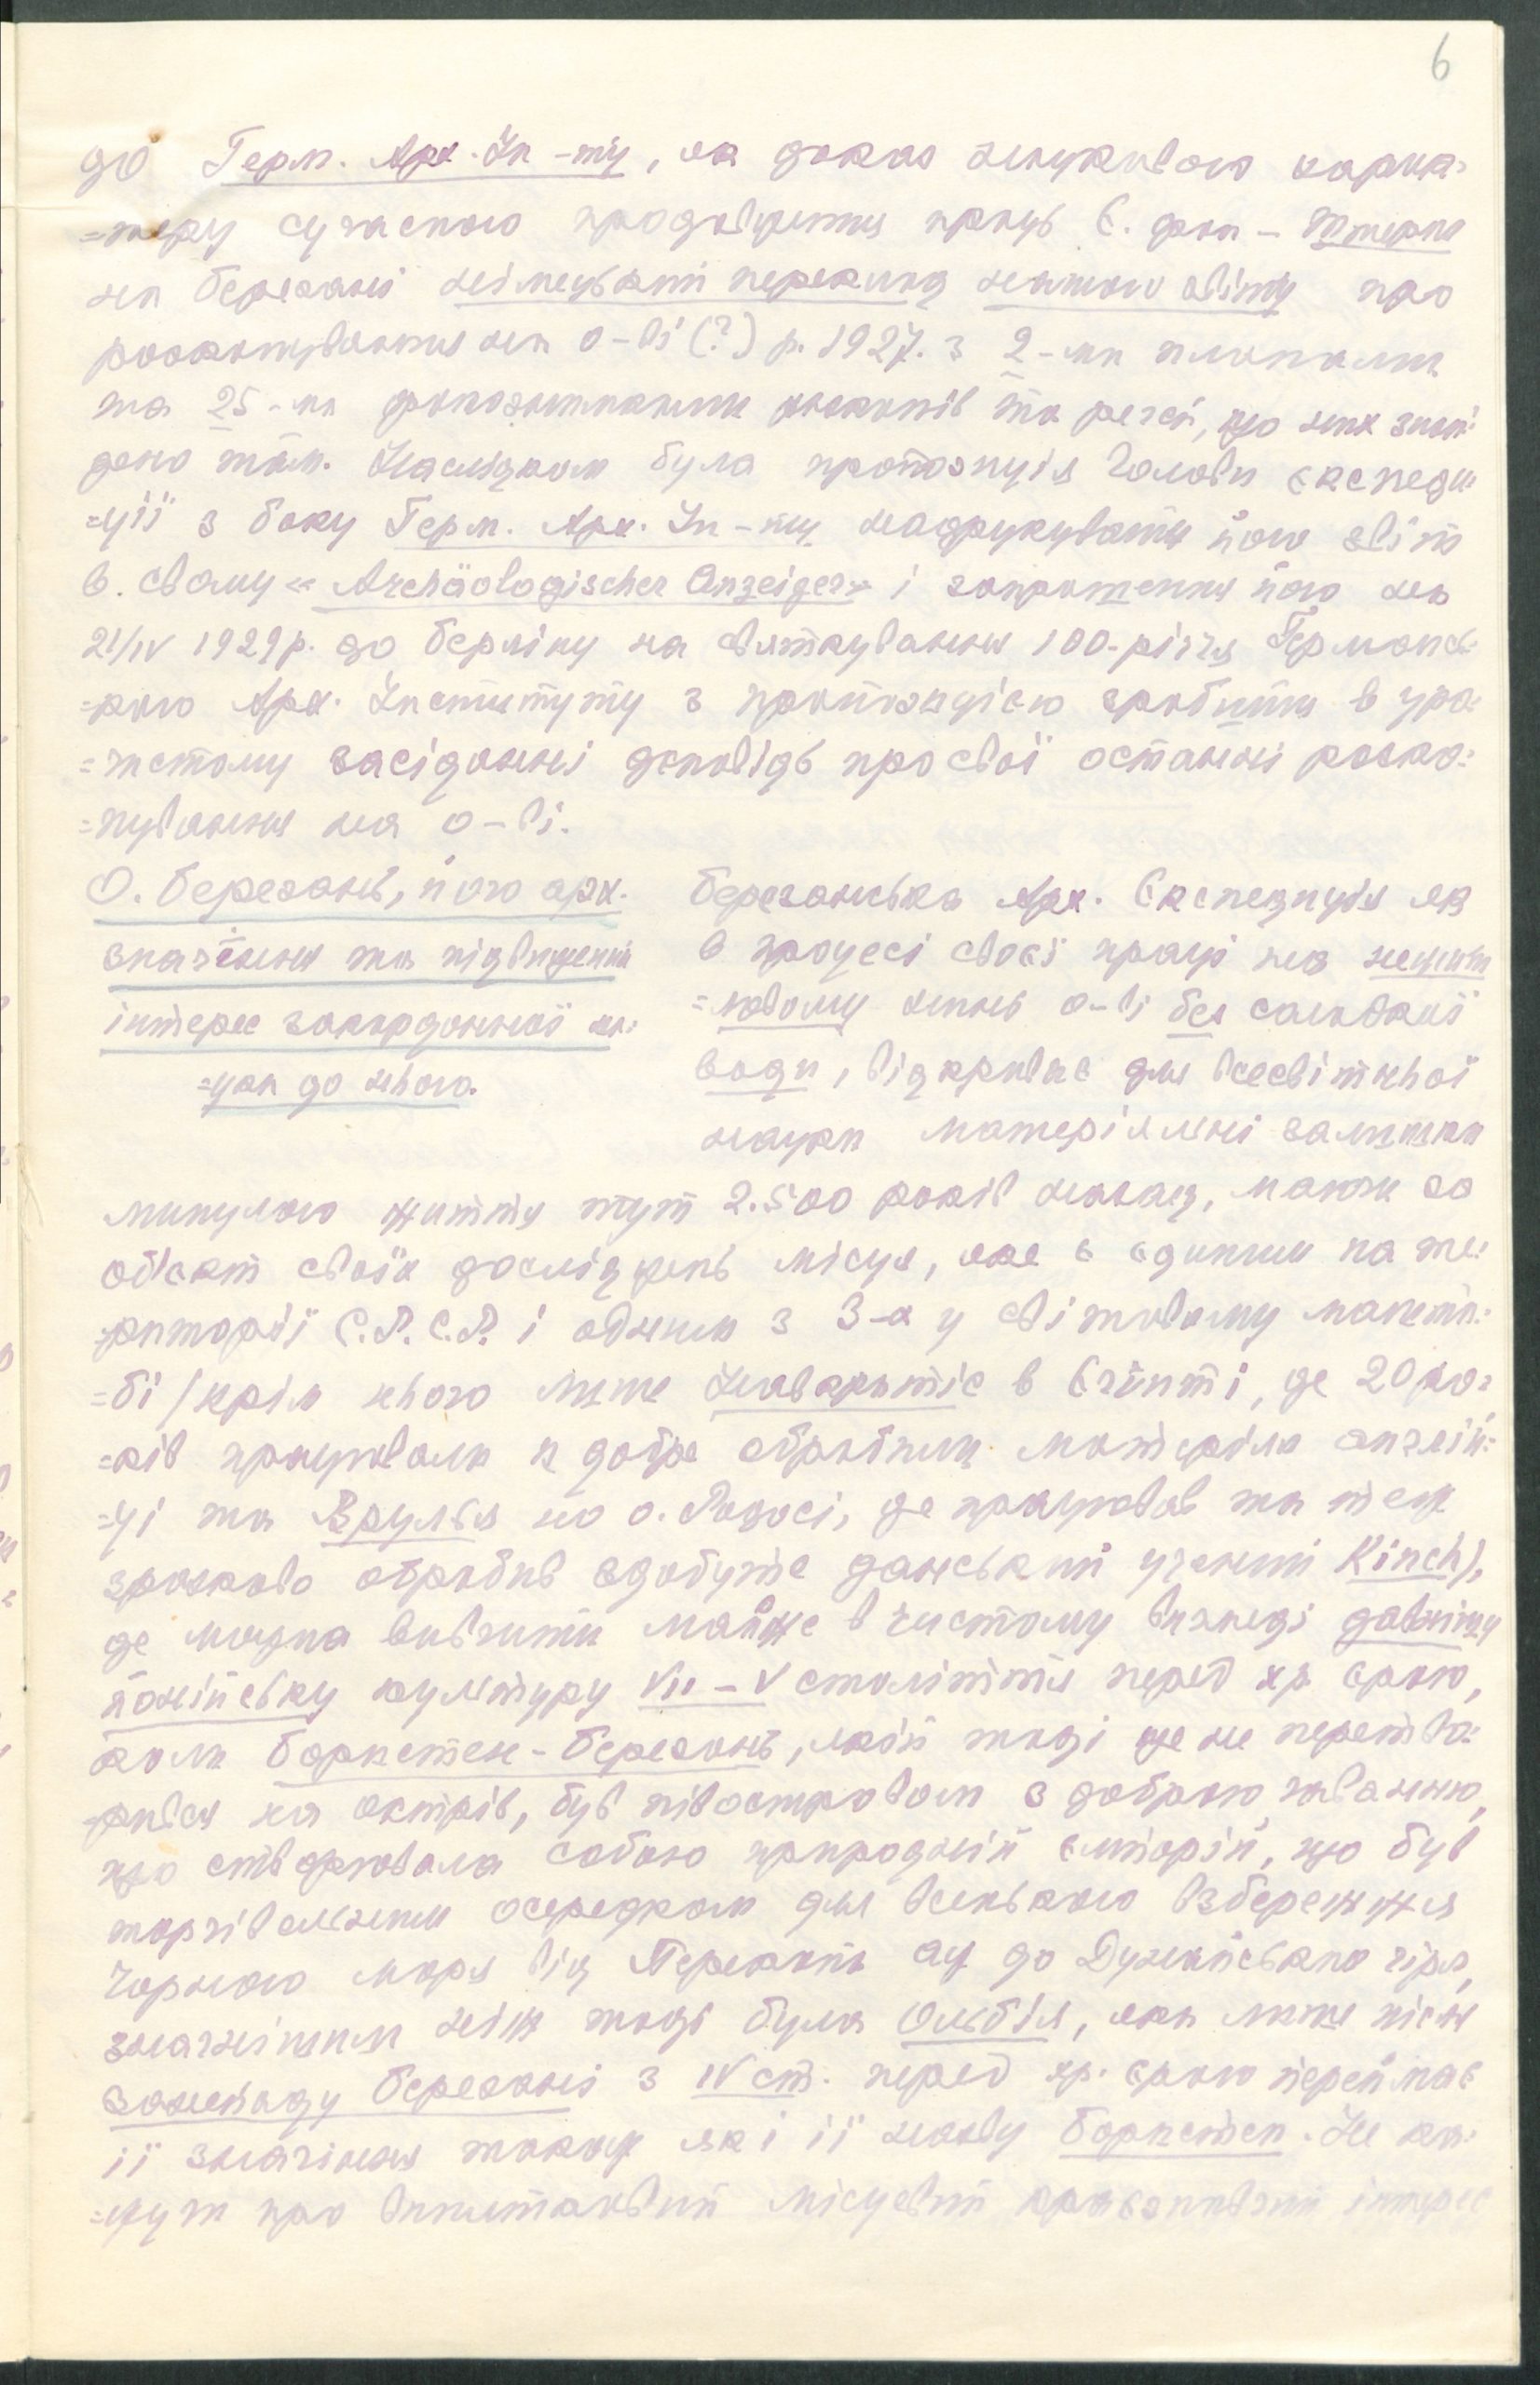 6
до Герм. Арх. Ін-ту, як доказ наукового харак-
=теру сучасного продовження праць Е. фон-Штерна
на Березані німецький переклад нашого звіту про
розкопування на о-ві (?) р. 1927. з 2-ма планами
та 25-ма фотознимками розкопів та речей, що них знай-
дено там. Наслідком була пропозиція Голови експеди-
=ції з боку Герм. Арх. Ін-ту надрукувати його звіт
в свому «Archäologischer Anzeiger» і запрошення його на
21/IV 1929 р. до Берліну на святкування 100-річчя Германсь-
=кого Арх. Інституту з пропозицією зробити в уро-
=чистому засіданні доповідь про свої останні розко-
=пування на о-ві.
О. Березань, його арх.
значіння та підвищений
інтерес закордонної на-
=уки до нього.
Березанська Арх. Експедиція як
в процесі своєї праці на нежит-
=ловому нині о-ві без солодкої
води, відкриває для всесвітньої
науки матеріяльні залишки
минулого життя тут 2.500 років назад, маючи за
об'єкт своїх досліджень місце, яке є єдиним на те-
=риторії С.Р.С.Р. і одним з 3-х у світовому масшта-
=бі (крім нього лише Навкратіс в Єгипті, де 20 ро-
=ків працювали й добре обробили матеріял англій-
=ці та Врулья на о. Родосі, де працював та теж
зразково обробив здобуте данський учений Kinch),
де можна вивчити майже в чистому вигляді давнішу
йонійську культуру VII–V століття перед хр. ерою,
коли Бористен-Березань, який тоді ще не перетво-
=рився на острів, був півостровом з доброю гаванню,
що стверджувала собою природній емпорій, що був
торгівельним осередком для всенького взбережжя
Чорного моря від Перекопу аж до Дунайського гірла,
значнішим ніж тоді була Ольбія, яка лише після
занепаду Березані з IV ст. перед хр. ерою переймає
її значіння також як і її назву Бористен. Не ка-
=жучи про винятковий місцевий краєзнавчий інтерес